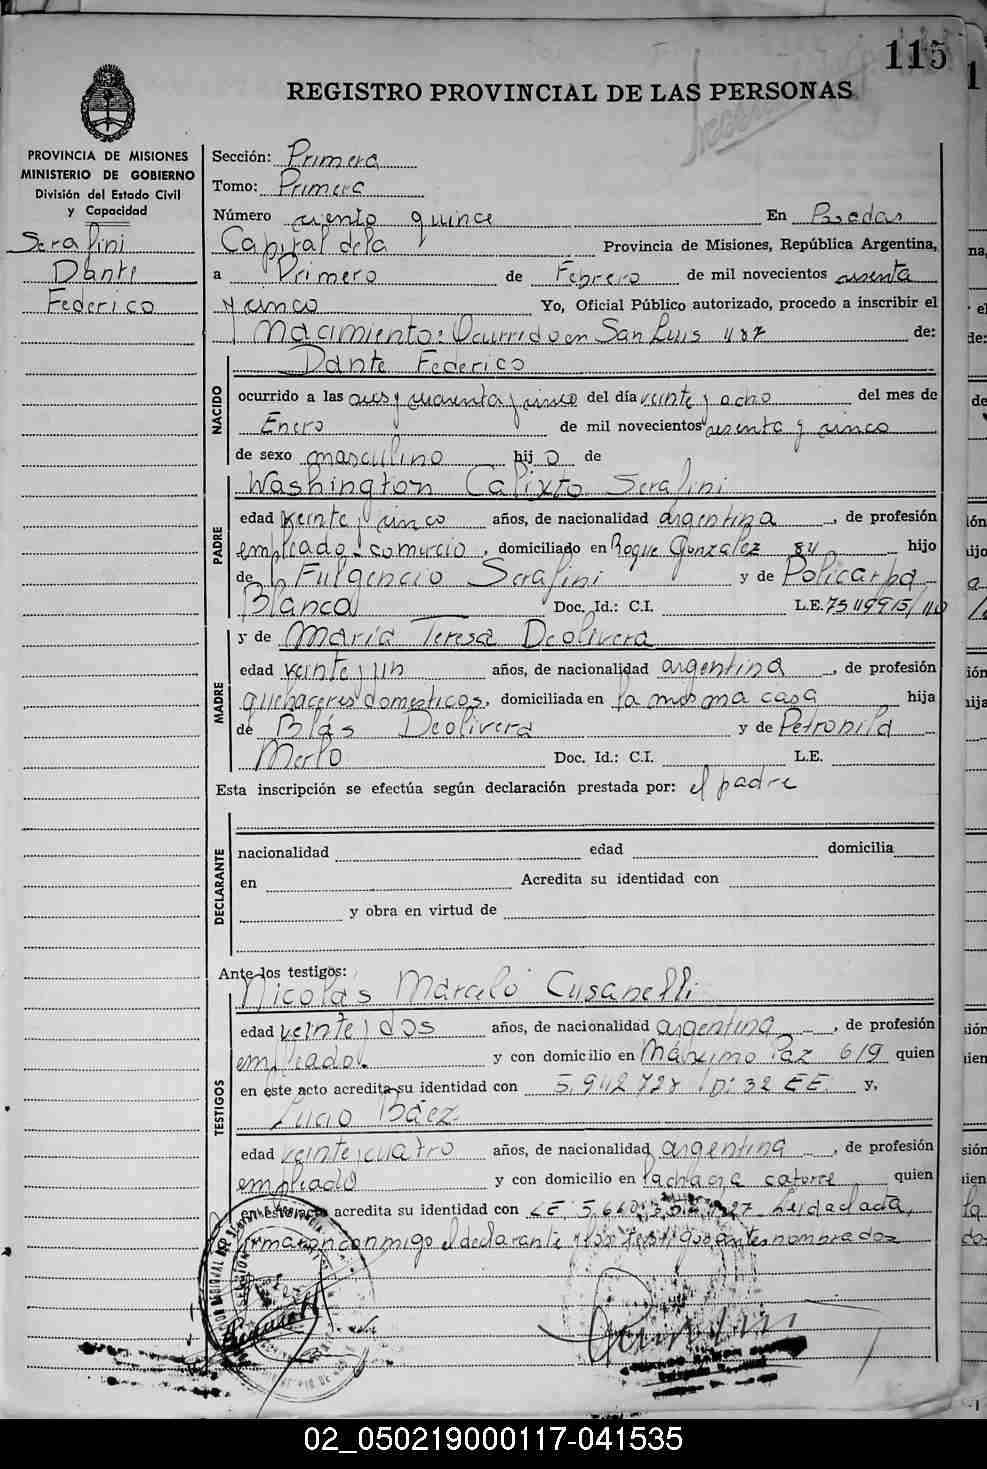 115
REGISTRO PROVINCIAL DE LAS PERSONAS
PROVINCIA DE MISIONES
MINISTERIO DE GOBIERNO
División del Estado Civil
y Capacidad
Serafini
Dante
Federico
Sección: Primera
Tomo: Primera
Número ciento quince En Posadas
Capital de la Provincia de Misiones, República Argentina,
a Primero de Febrero de mil novecientos sesenta
y cinco Yo, Oficial Público autorizado, procedo a inscribir el
Nacimiento: Ocurrido en San Luis 487 de:
NACIDO
Dante Federico
ocurrido a las y cuarenta y cinco del día veinte y ocho del mes de
Enero de mil novecientos sesenta y cinco
de sexo masculino hijo de
PADRE
Washington Calixto Serafini
edad veinte y cinco años, de nacionalidad argentina, de profesión
empleado comercio, domiciliado en Roque Gonzalez 84 hijo
de Fulgencio Serafini y de Policarpa
Blanca Doc. Id.: C.I. L.E.
y de María Teresa Deolivera
MADRE
edad veinte y un años, de nacionalidad argentina, de profesión
quehaceres domesticos, domiciliada en la misma casa hija
de Blás Deolivera y de Petronila
Merlo Doc. Id.: C.I. L.E.
Esta inscripción se efectúa según declaración prestada por: el padre
DECLARANTE
nacionalidad edad domicilia
en Acredita su identidad con
y obra en virtud de
Ante los testigos:
TESTIGOS
Nicolás Marcelo Cusanelli
edad veinte y dos años, de nacionalidad argentina, de profesión
empleado. y con domicilio en Máximo Paz 619 quien
en este acto acredita su identidad con 5.942.728 D: 32 EE y,
Lucio Báez
edad veinte cuatro años, de nacionalidad argentina, de profesión
empleado y con domicilio en chacra catorce quien
en este acto acredita su identidad con LE 5.640. Leida el acta,
firmaron conmigo el declarante y los testigos antes nombrados
02_050219000117-041535